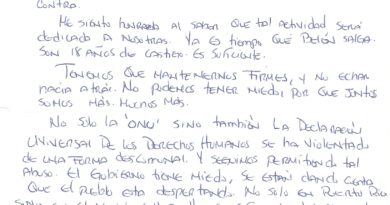 CONTRA.
ME SIENTO HONRADO AL SABER QUE TAL ACTIVIDAD SERÁ
DEDICADO A NOSOTRAS. YA ES TIEMPO QUE BELÉN SALGA.
SON 18 AÑOS DE CASTIGO. ES SUFICIENTE.
TENEMOS QUE MANTENERNOS FIRMES, Y NO ECHAR
HACIA ATRÁS. NO PODEMOS TENER MIEDO, POR QUE JUNTOS
SOMOS MÁS. MUCHOS MÁS.
NO SÓLO LA "ONU" SINO TAMBIÉN LA DECLARACIÓN
UNIVERSAL DE LOS DERECHOS HUMANOS SE HA VIOLENTADO
DE UNA FORMA DESCOMUNAL. Y SEGUIMOS PERMITIENDO TAL
ABUSO. EL GOBIERNO TIENE MIEDO, SE ESTÁN DANDO CUENTA
QUE EL PUEBLO ESTA DESPERTANDO. NO SOLO EN PUERTO RICO